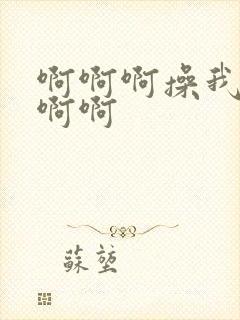 啊啊啊操我
啊啊
蘇塹